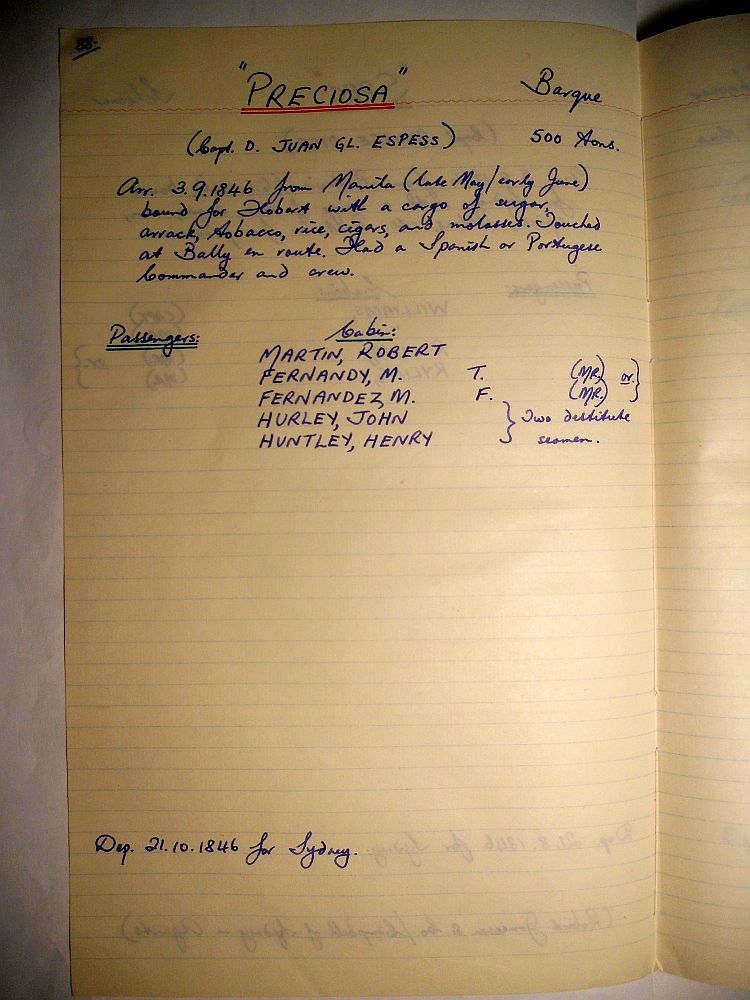 88.
"PRECIOSA" Barque
(Capt. D. JUAN GL. ESPESS) 500 tons.
Arr. 3.9.1846 from Manila (late May/early June)
bound for Hobart with a cargo of sugar,
arrack, tobacco, rice, cigars, and molasses. Touched
at Bally en route. Had a Spanish or Portugese
Commander and crew.
Passengers: Cabin:
MARTIN, ROBERT
FERNANDY, M. T. (MR.) or }
FERNANDEZ, M. F. (MR.)
HURLEY, JOHN } Two destitute
HUNTLEY, HENRY seamen.
Dep. 21.10.1846 for Sydney.